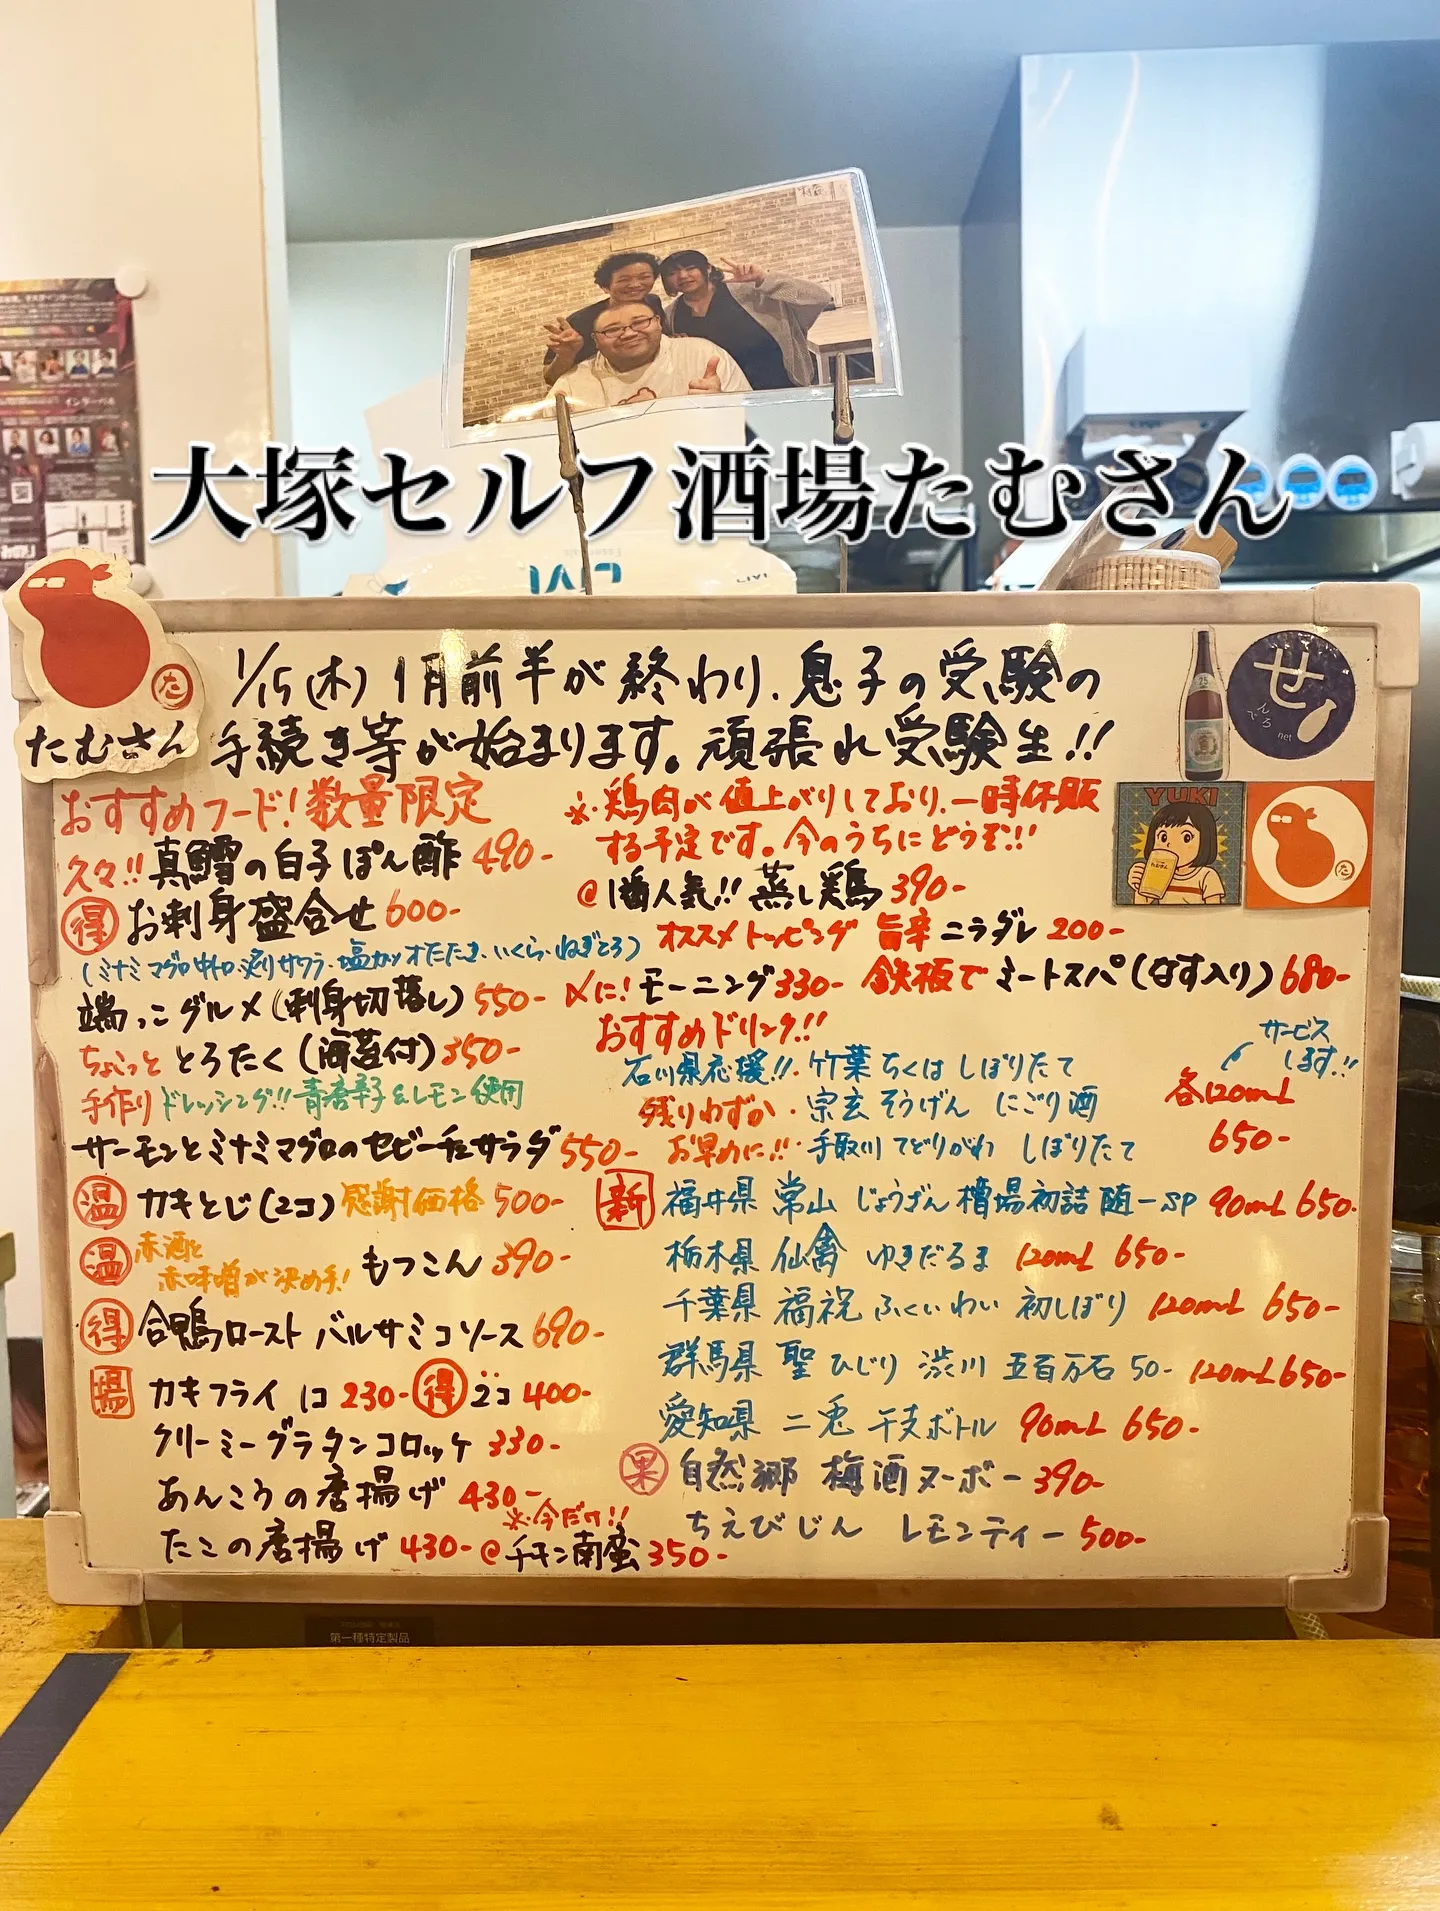 大塚セルフ酒場たむさん
たむさん
た
1/15(木) 1月前半が終わり、息子の受験の
手続き等が始まります。頑張れ受験生!!
せ
んろ
でnet
YUKI
おすすめフード!数量限定
久々!!真鱈の白子ぽん酢 490-
得 お刺身盛合せ 600-
(ミナミマグロ中トロ、炙りサワラ、塩カツオたたき、いくら、ねぎとろ)
端っこグルメ(刺身切落し) 550-
ちょこっと とろたく(海苔付) 350-
手作りドレッシング!!青唐辛子&レモン使用
サーモンとミナミマグロのセビーチェサラダ 550-
温 カキとじ(2コ) 感謝価格 500-
温 赤酒と
赤味噌が決め手! もつこん 390-
得 合鴨ロースト バルサミコソース 690-
揚 カキフライ 1コ 230- 得 2コ 400-
クリーミーグラタンコロッケ 330-
あんこうの唐揚げ 430-
※今だけ!!
たこの唐揚げ 430- @チキン南蛮 350-
※鶏肉が値上がりしており、一時休販
する予定です。今のうちにどうぞ!!
@1番人気!! 蒸し鶏 390-
オススメトッピング 旨辛 ニラダレ 200-
〆に!モーニング 330- 鉄板で ミートスパ(なす入り) 680-
おすすめドリンク!!
サービス
します!!
石川県応援!!・竹葉 ちくは しぼりたて
残りわずか・宗玄 そうげん にごり酒
お早めに!!・手取川 てどりがわ しぼりたて
各120mL
650-
新 福井県 常山 じょうざん 槽場初詰 随一SP 90mL 650-
栃木県 仙禽 ゆきだるま 120mL 650-
千葉県 福祝 ふくいわい 初しぼり 120mL 650-
群馬県 聖 ひじり 渋川 五百万石 50- 120mL 650-
愛知県 二兎 干支ボトル 90mL 650-
果 自然郷 梅酒ヌーボー 390-
ちえびじん レモンティー 500-
第一種特定製品